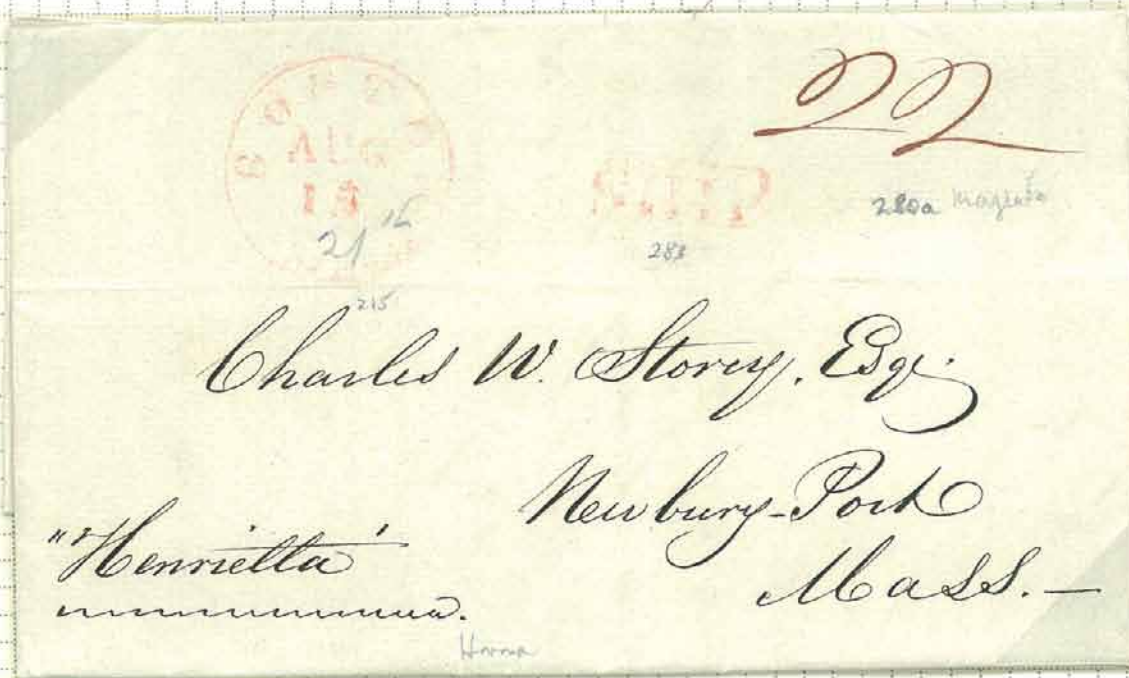 BOSTON
AUG
SHIP
22
280a magenta
21
283
215
Charles W. Storey, Esqr.
Newbury-Port
"Henrietta"
Mass.—